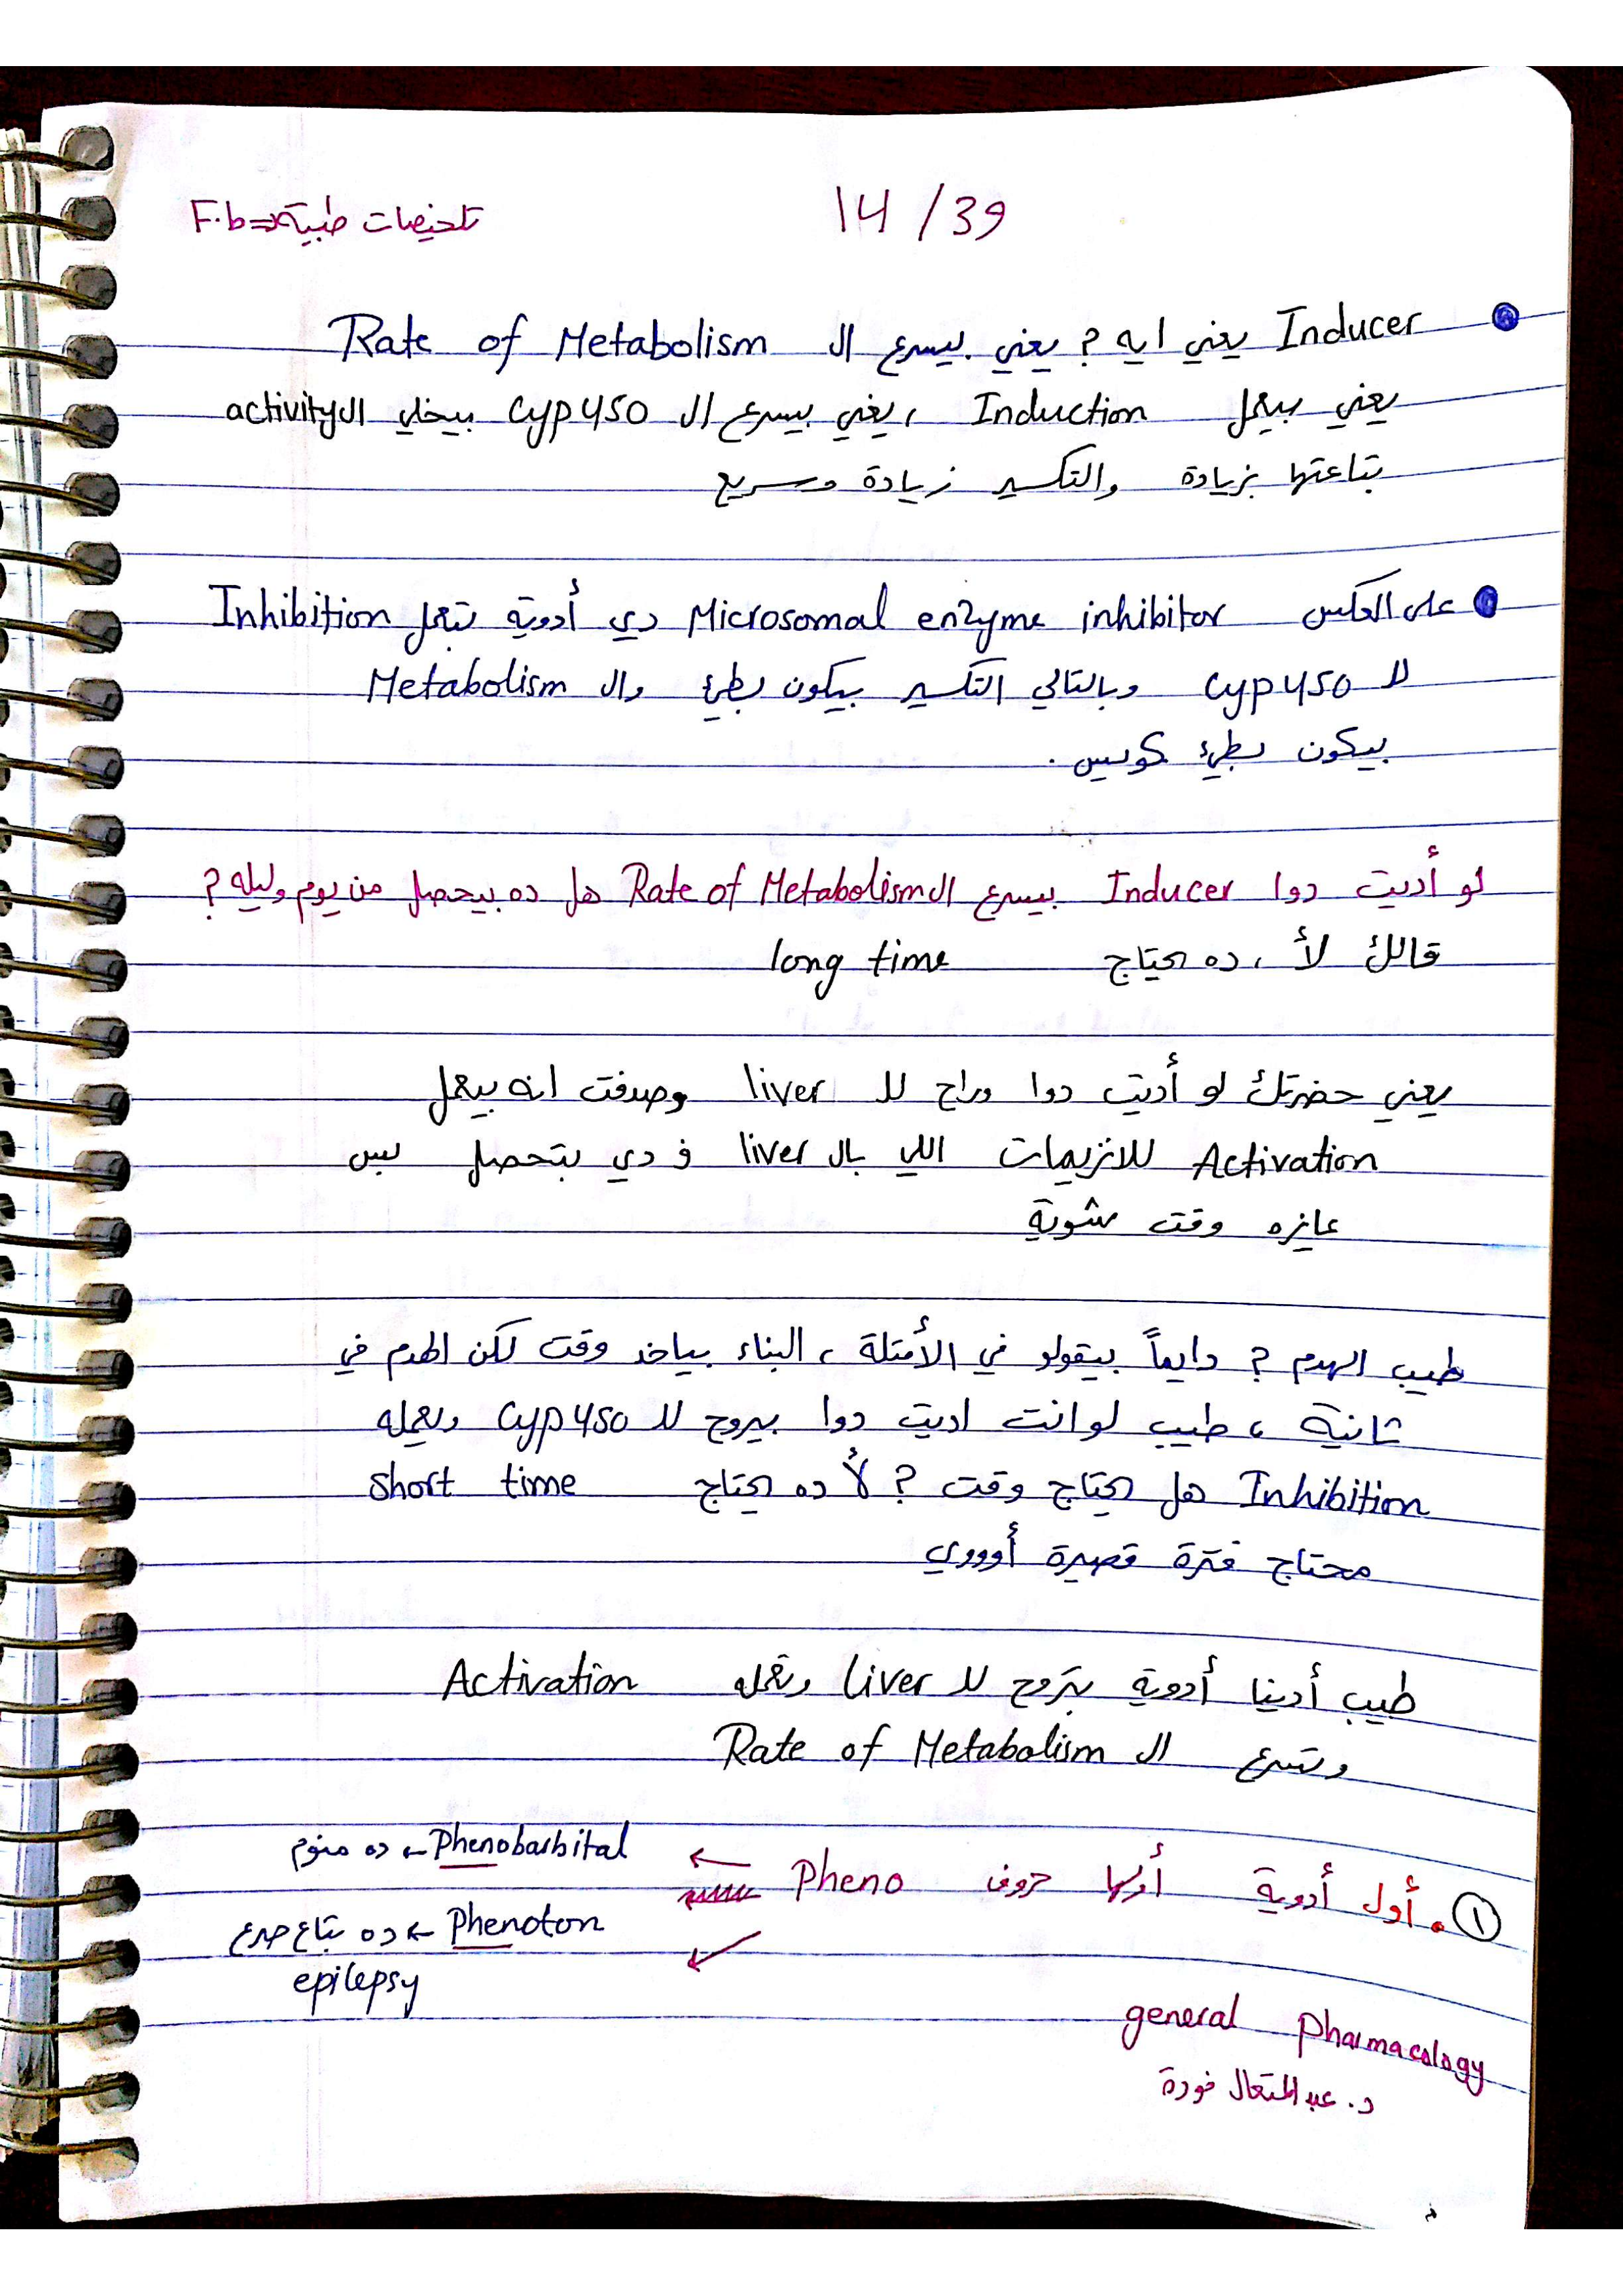 14/39
تلخيصات طبية => F.b
Inducer يعني ايه ? يعني بيسرع ال Rate of Metabolism
يعني بيعمل Induction ، يعني بيسرع ال Cyp450 بيخلي ال activity
بتاعتها بزيادة والتكسير زيادة وسريع
على العكس Microsomal enzyme inhibitor دي أدوية تعمل Inhibition
لل Cyp450 وبالتالي التكسير بيكون بطئ وال Metabolism
بيكون بطئ كويس .
لو أديت دوا Inducer بيسرع ال Rate of Metabolism هل ده بيحصل من يوم وليله ?
قالك لأ ، ده يحتاج long time
يعني حضرتك لو أديت دوا وراح لل liver وصدفت انه بيعمل
Activation للانزيمات اللي بال liver ف دي بتحصل بس
عايزه وقت شوية
طيب الهدم ? دايماً بيقولو في الأمتلة ، البناء بياخد وقت لكن الهدم في
ثانية ، طيب لو انت اديت دوا بيروح لل Cyp450 ويعمله
Inhibition هل يحتاج وقت ? لأ ده يحتاج short time
محتاج فترة قصيرة أوووي
طيب أدينا أدوية بتروح لل liver وتعمله Activation
وتسرع ال Rate of Metabolism
① . أول أدوية أولها حروف Pheno
Phenobarbital ← ده منوم
Phenoton ← ده بتاع صرع
epilepsy
general Pharmacology
د. عبد المتعال فودة